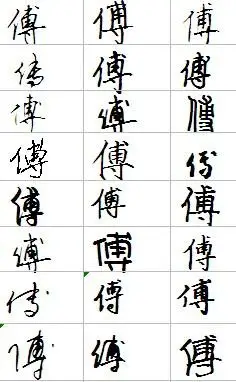 傅 傅 傅
傅 傅 傅
傅 傅 傅
傅 傅 傅
傅 傅 傅
傅 傅 傅
傅 傅 傅
傅 傅 傅